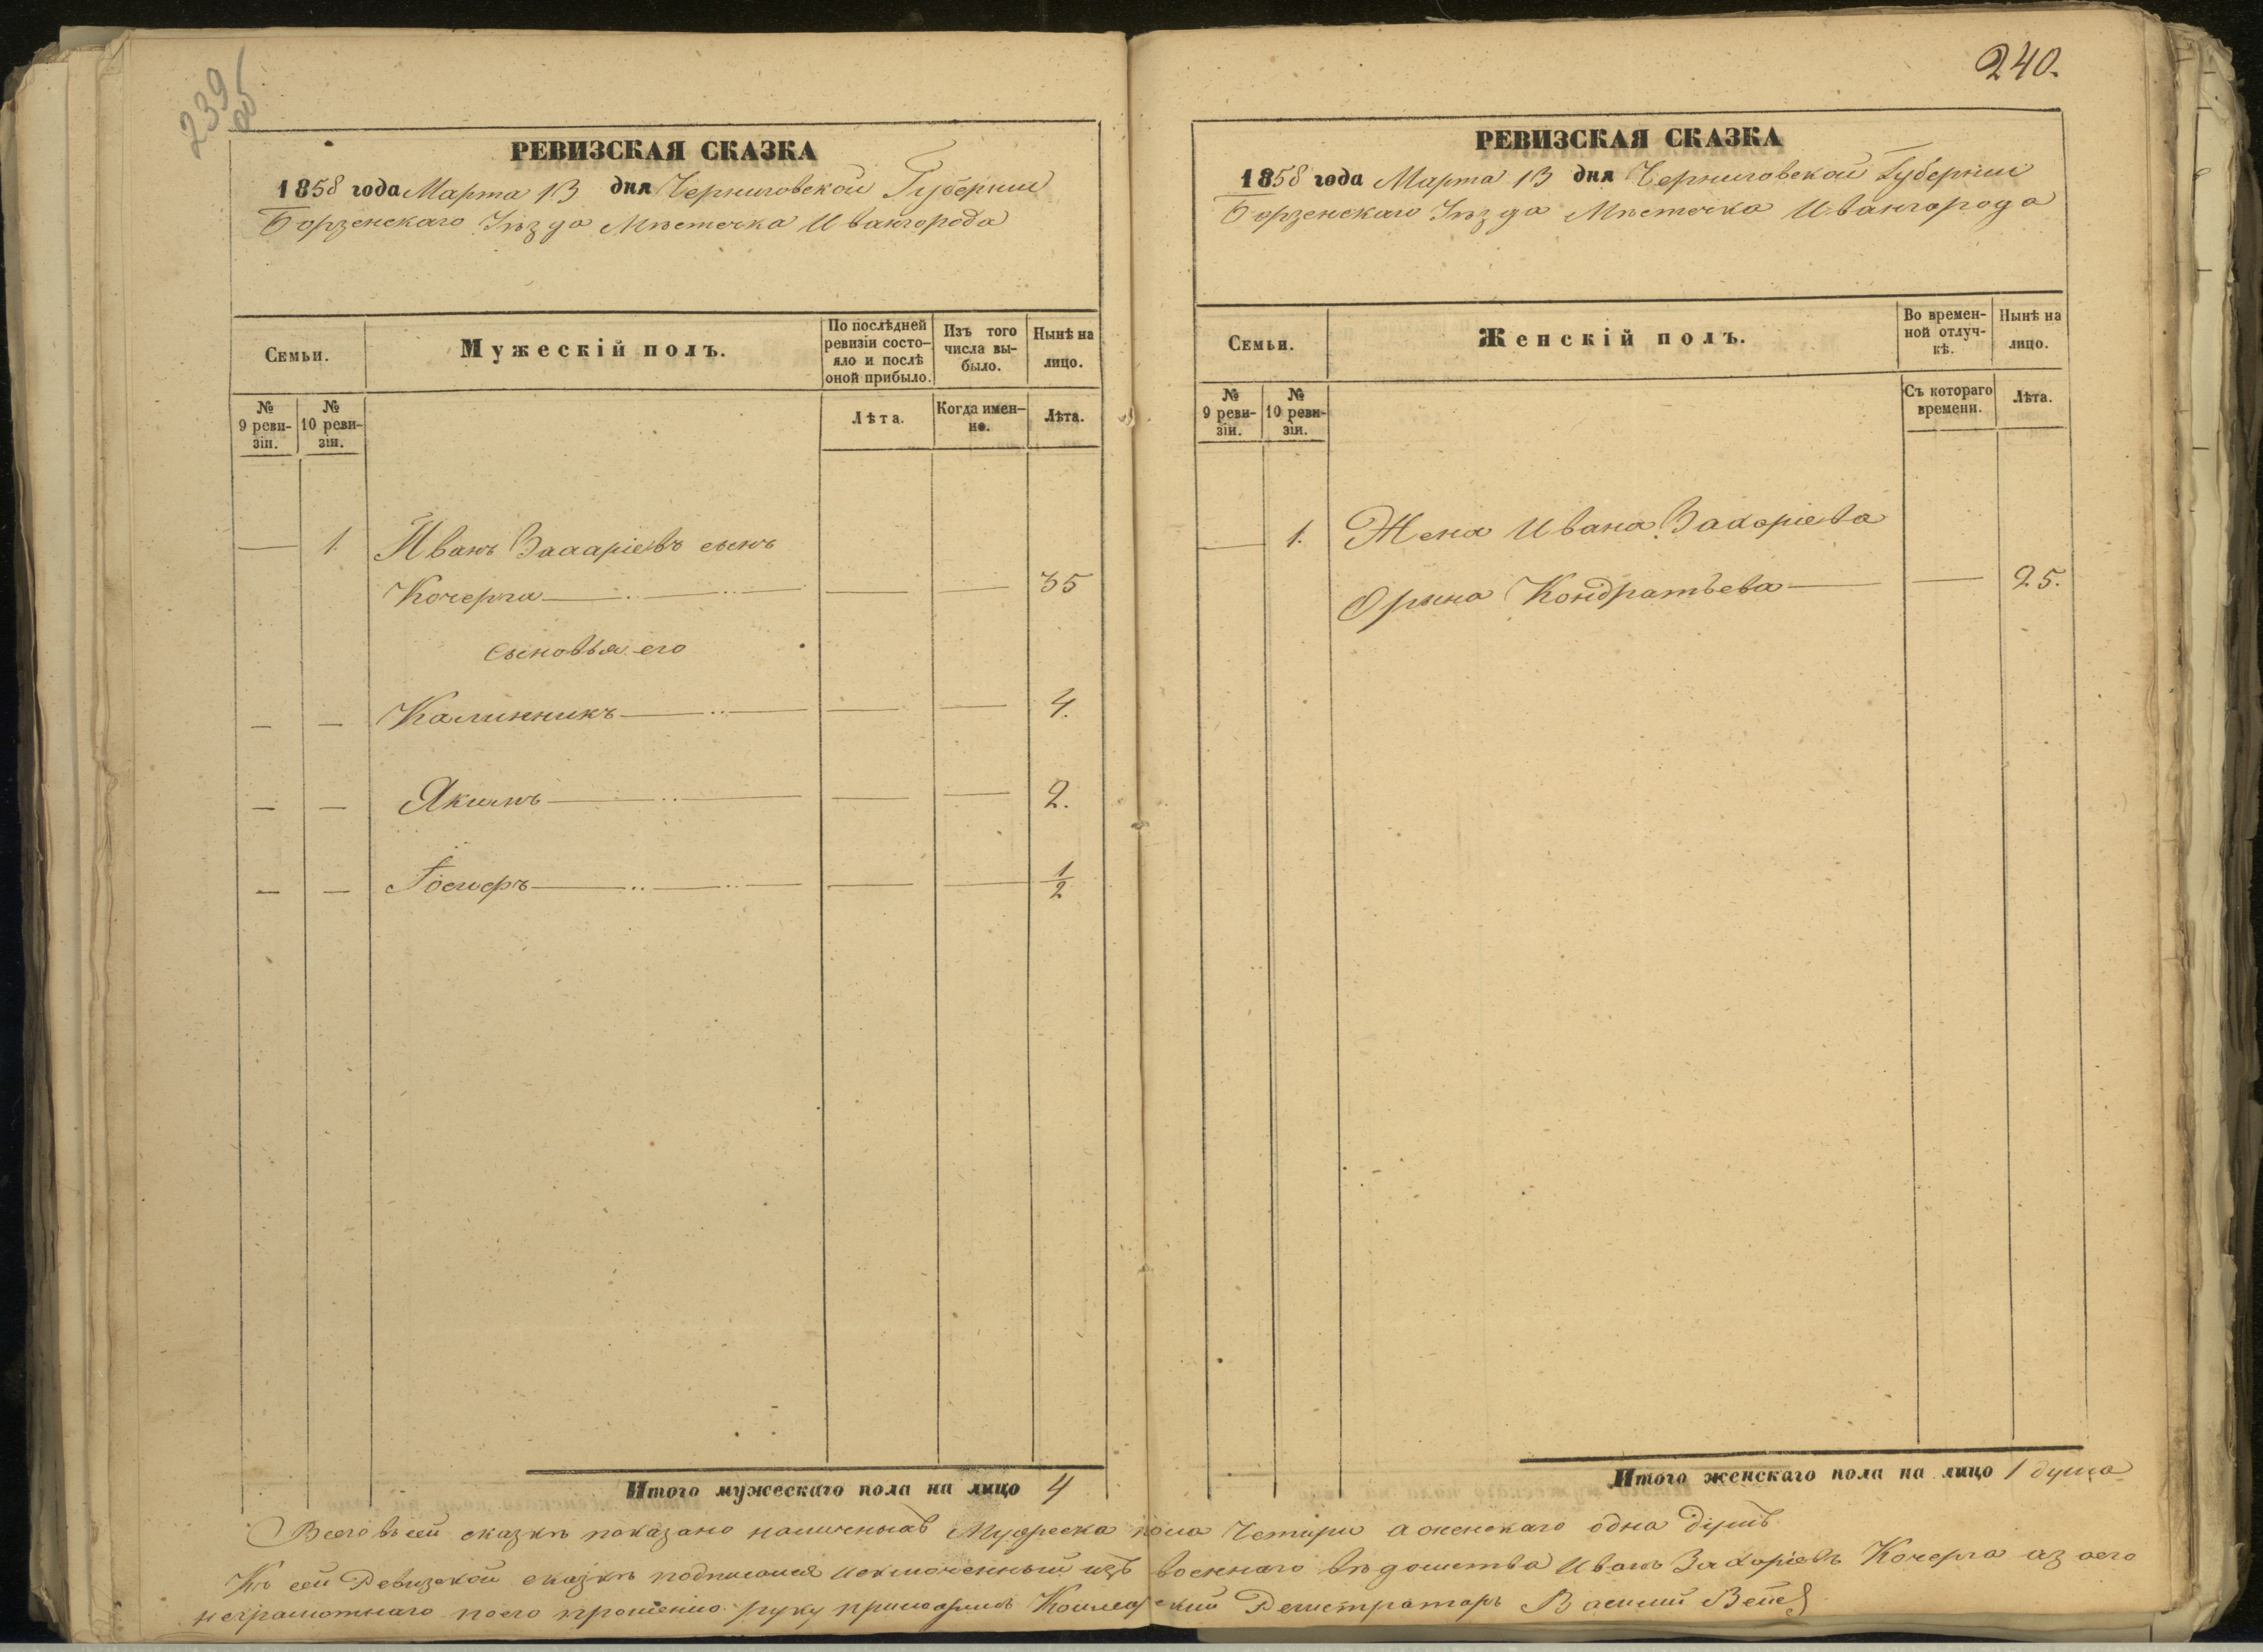 239 об
РЕВИЗСКАЯ СКАЗКА
1858 года Марта 13 дня Черниговской Губернии
Борзенскаго Уѣзда Мѣстечка Ивангорода
Семьи.
Мужескій полъ.
По послѣдней ревизіи состо-
яло и послѣ оной прибыло.
Изъ того числа вы-
было.
Нынѣ на лицо.
№ 9 реви-
зіи.
№ 10 реви-
зіи.
Лѣта.
Когда имен-
но.
Лѣта.
— 1. Иванъ Захаріевъ сынъ
Кочерга — — — 35
сыновья его
— — Калинникъ — — — 4.
— — Якимъ — — — 2.
— — Іосифъ — — — 1/2
Итого мужескаго пола на лицо 4
240.
РЕВИЗСКАЯ СКАЗКА
1858 года Марта 13 дня Черниговской Губерніи
Борзенскаго Уѣзда Мѣстечка Ивангорода
Семьи.
Женскій полъ.
Во времен-
ной отлуч-
кѣ.
Нынѣ на лицо.
№ 9 реви-
зіи.
№ 10 реви-
зіи.
Съ котораго времени.
Лѣта.
— 1. Жена Ивана Захаріева
Орина Кондратьева — — 25.
Итого женскаго пола на лицо 1 душа
Всего въ сей сказкѣ показано наличныхъ Мужеска пола Четыри а женскаго одна душъ
Къ сей Ревизской сказкѣ подписался исключенный изъ военнаго вѣдомства Иванъ Захаріевъ Кочерга а за него
неграмотнаго по его прошенію руку приложилъ Коллежскій Регистраторъ Василий